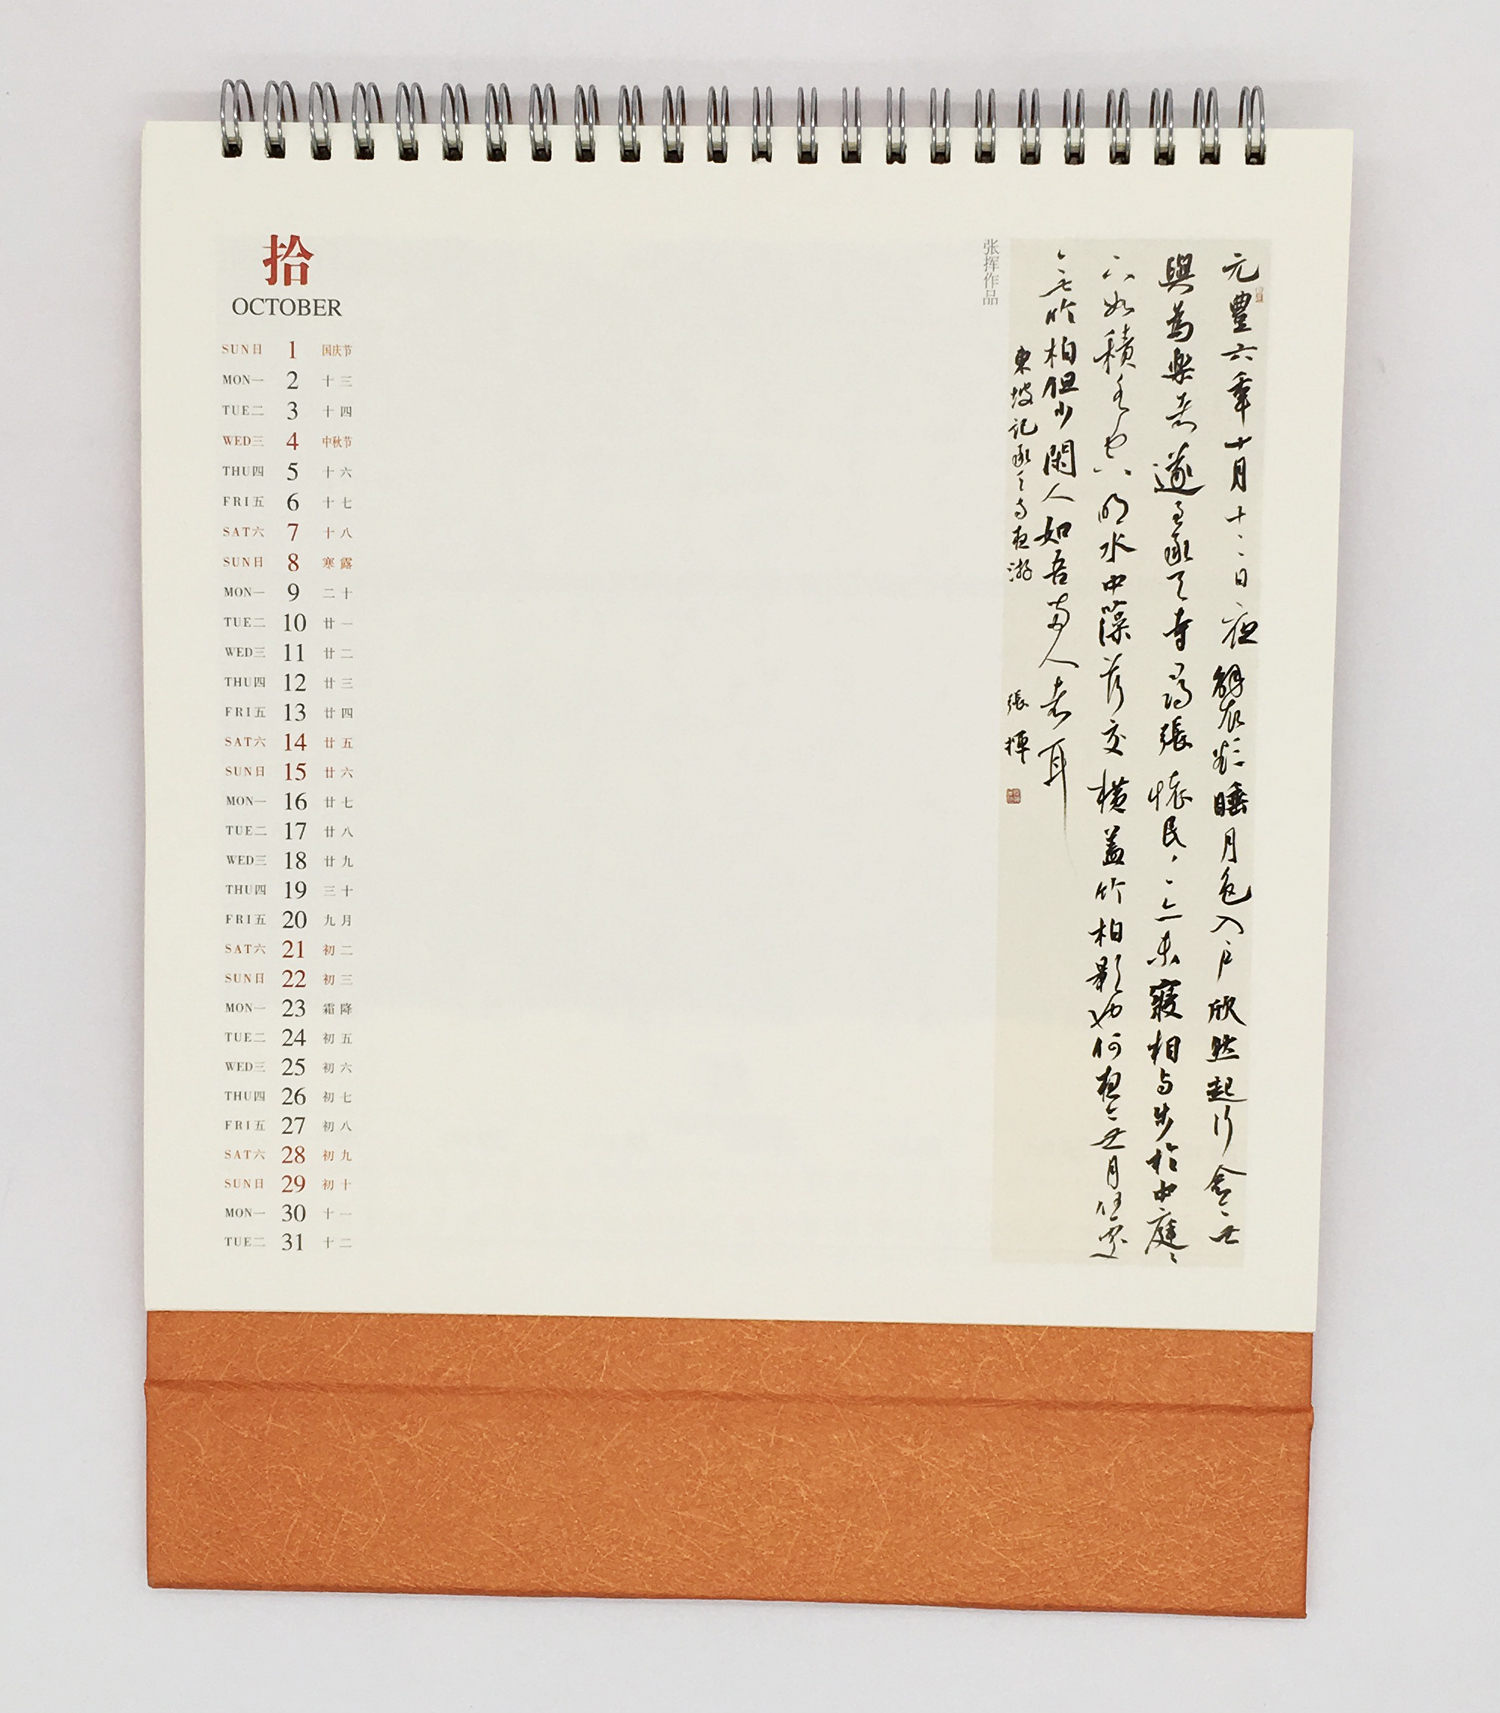 拾
OCTOBER
SUN日 1 国庆节
MON一 2 十三
TUE二 3 十四
WED三 4 中秋节
THU四 5 十六
FRI五 6 十七
SAT六 7 十八
SUN日 8 寒露
MON一 9 二十
TUE二 10 廿一
WED三 11 廿二
THU四 12 廿三
FRI五 13 廿四
SAT六 14 廿五
SUN日 15 廿六
MON一 16 廿七
TUE二 17 廿八
WED三 18 廿九
THU四 19 三十
FRI五 20 九月
SAT六 21 初二
SUN日 22 初三
MON一 23 霜降
TUE二 24 初五
WED三 25 初六
THU四 26 初七
FRI五 27 初八
SAT六 28 初九
SUN日 29 初十
MON一 30 十一
TUE二 31 十二
元豐六年十月十二日夜解衣欲睡月色入户欣然起行念無
與為樂者遂至承天寺尋張懷民々亦未寢相與步於中庭々
下如積水空明水中藻荇交橫盖竹柏影也何夜無月何處
無竹柏但少閑人如吾兩人者耳
東坡記承天寺夜游 張揮
张挥作品